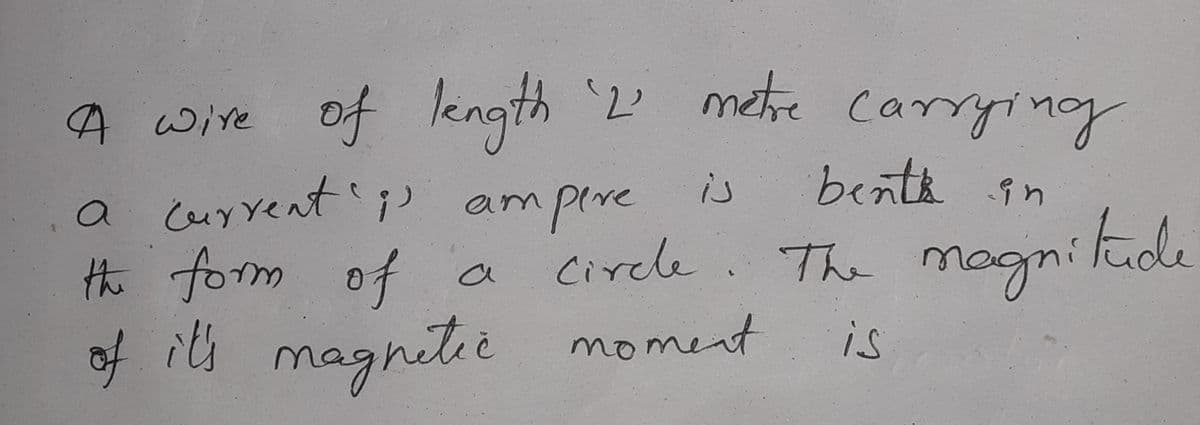 A wire of length 'L' metre carrying
a current 'i' ampere is bent in
the form of a circle. The magnitude
of it's magnetic moment is